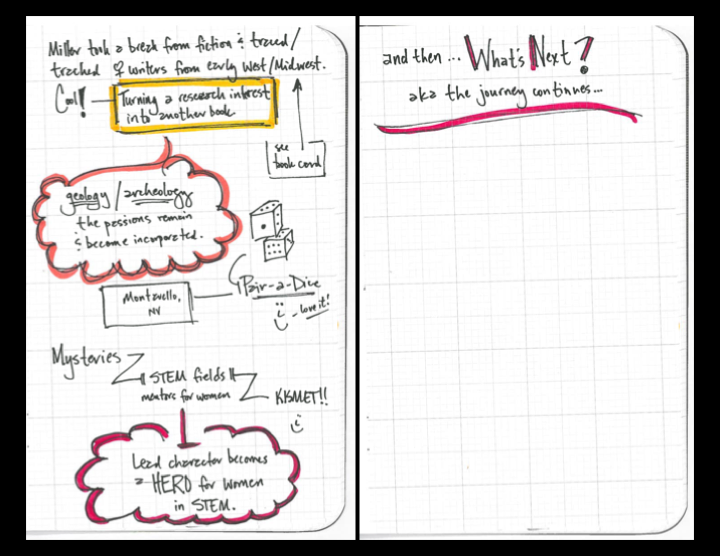 Miller took a break from fiction & traced/
tracked ♀ writers from early West/Midwest.
Cool!
Turning a research interest
into another book
see
book card
geology/archeology
the passions remain
& become incorporated.
Pair-a-Dice
love it!
Montevello,
NV
Mysteries
STEM fields
mentors for women
KISMET!!
Lead character becomes
a HERO for women
in STEM.
and then... What's Next?
aka the journey continues...